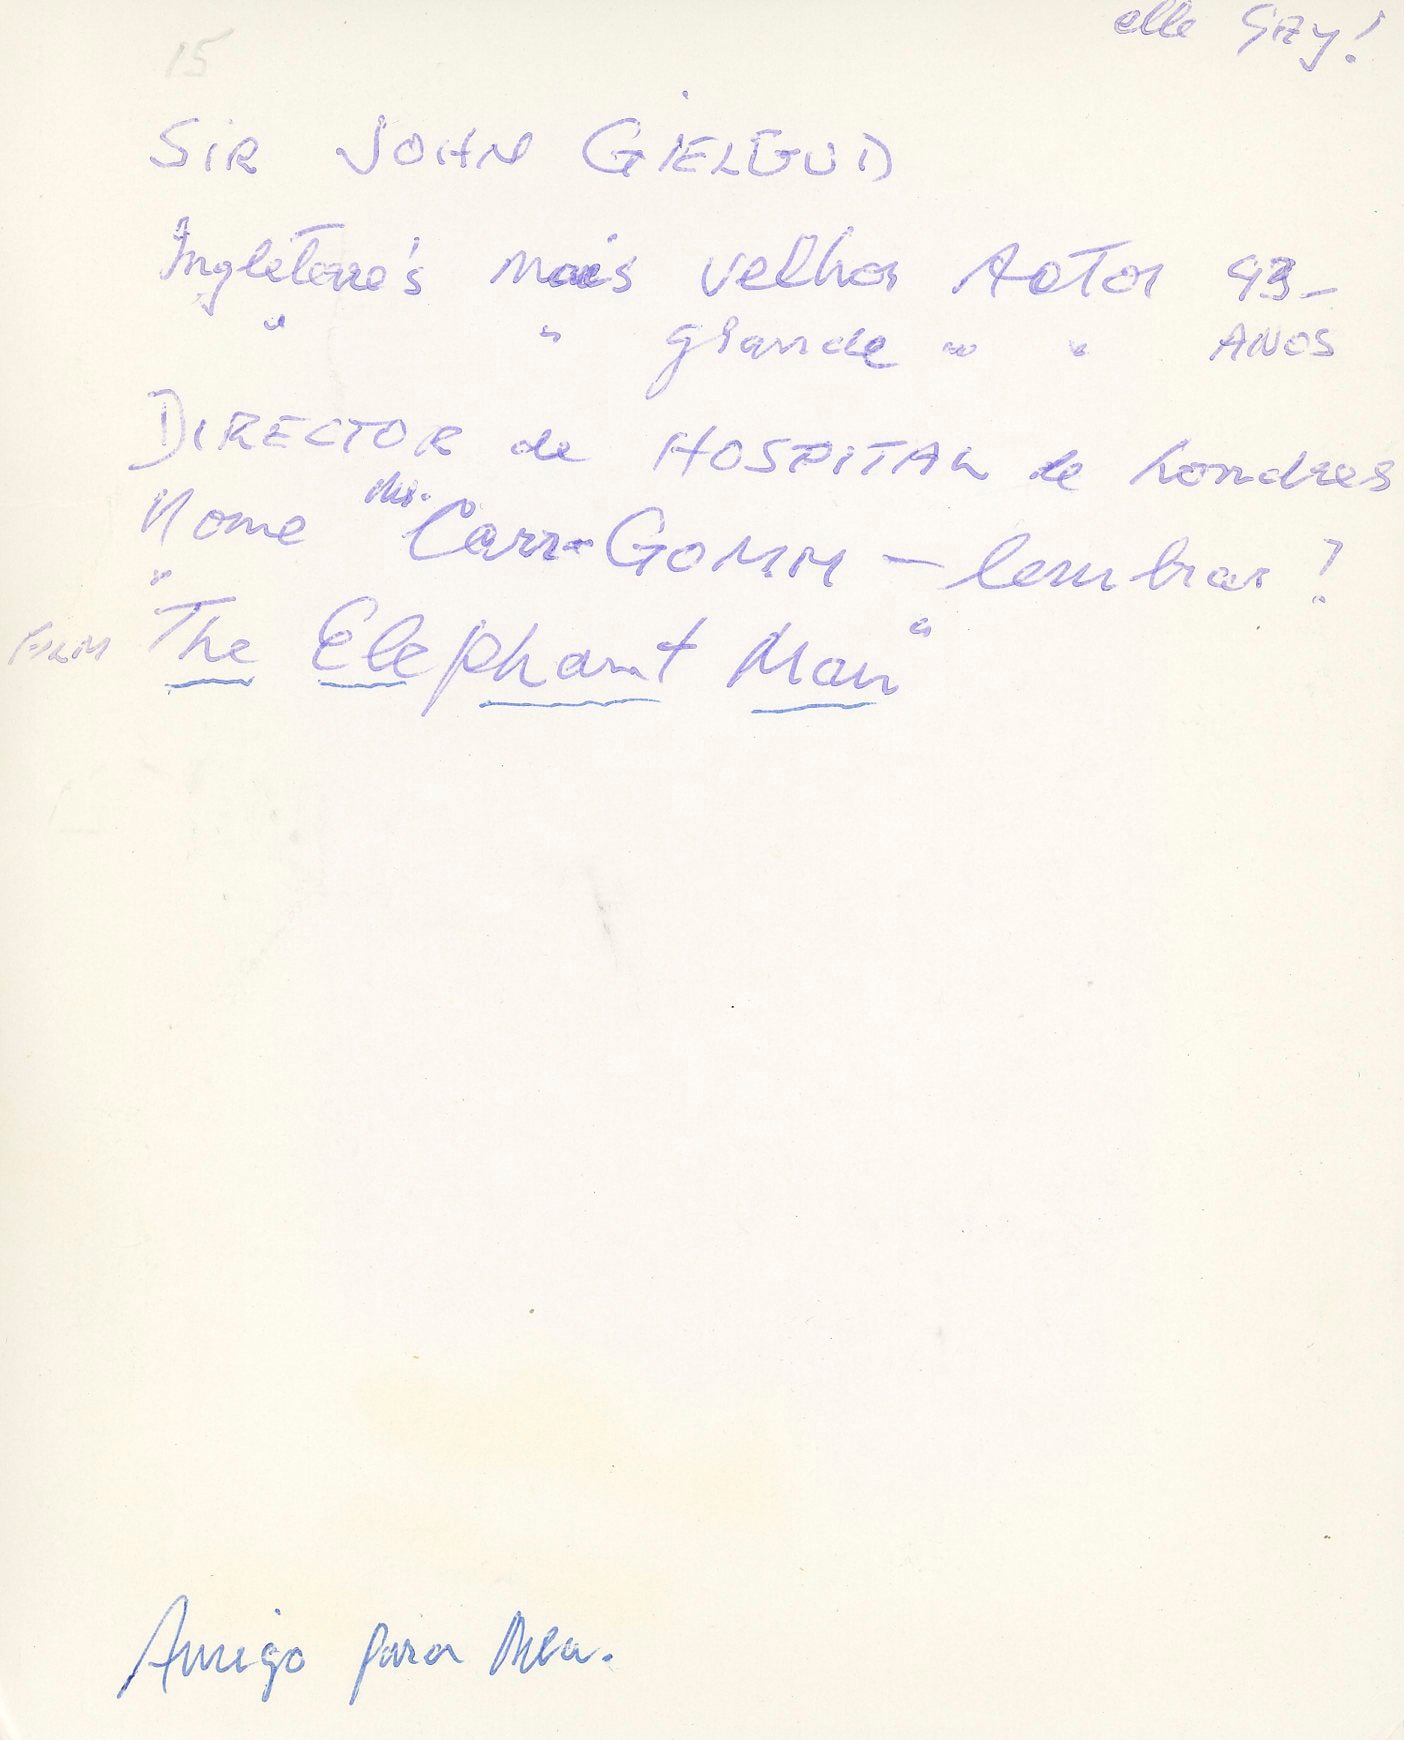 elle Gay!
15
SiR JOHN GiELGUD
Ingleterre's mais velhor Actor 93-
" " grande " " ANOS
DIRECTOR de HOSPITAL de Londres
Nome Mr. Carr-GOMM - lembrar!
FILM "The Elephant Man"
Amigo para Mea.